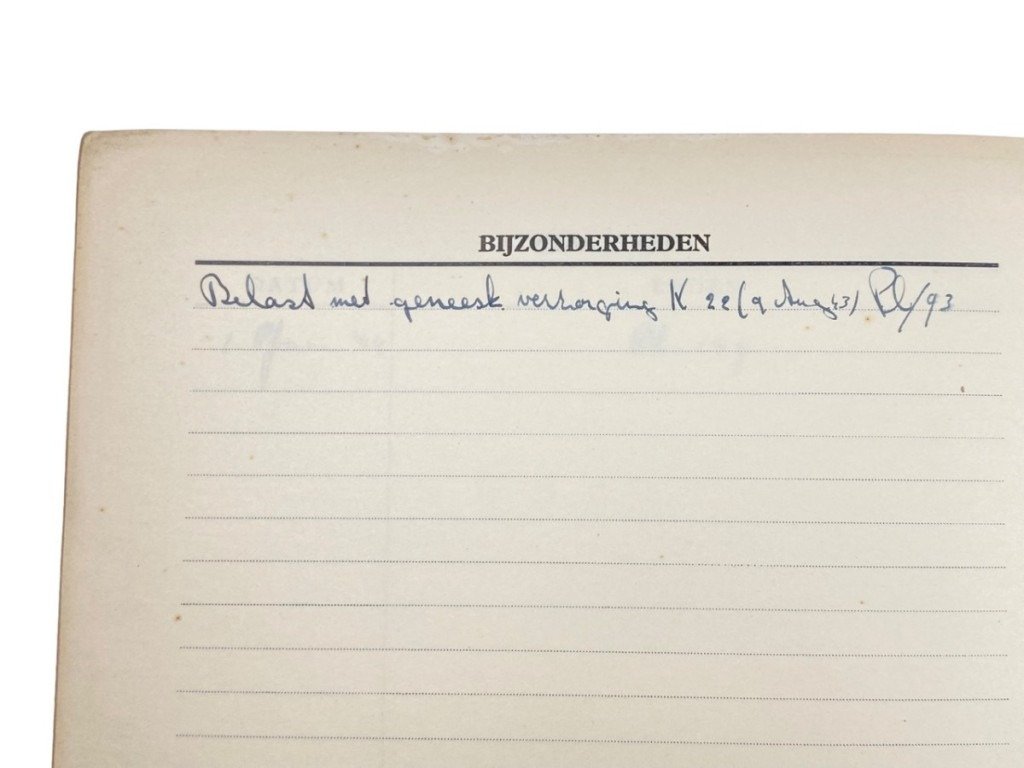 BIJZONDERHEDEN
Belast met geneesk. verzorging K 22 (9 Aug 43) /93